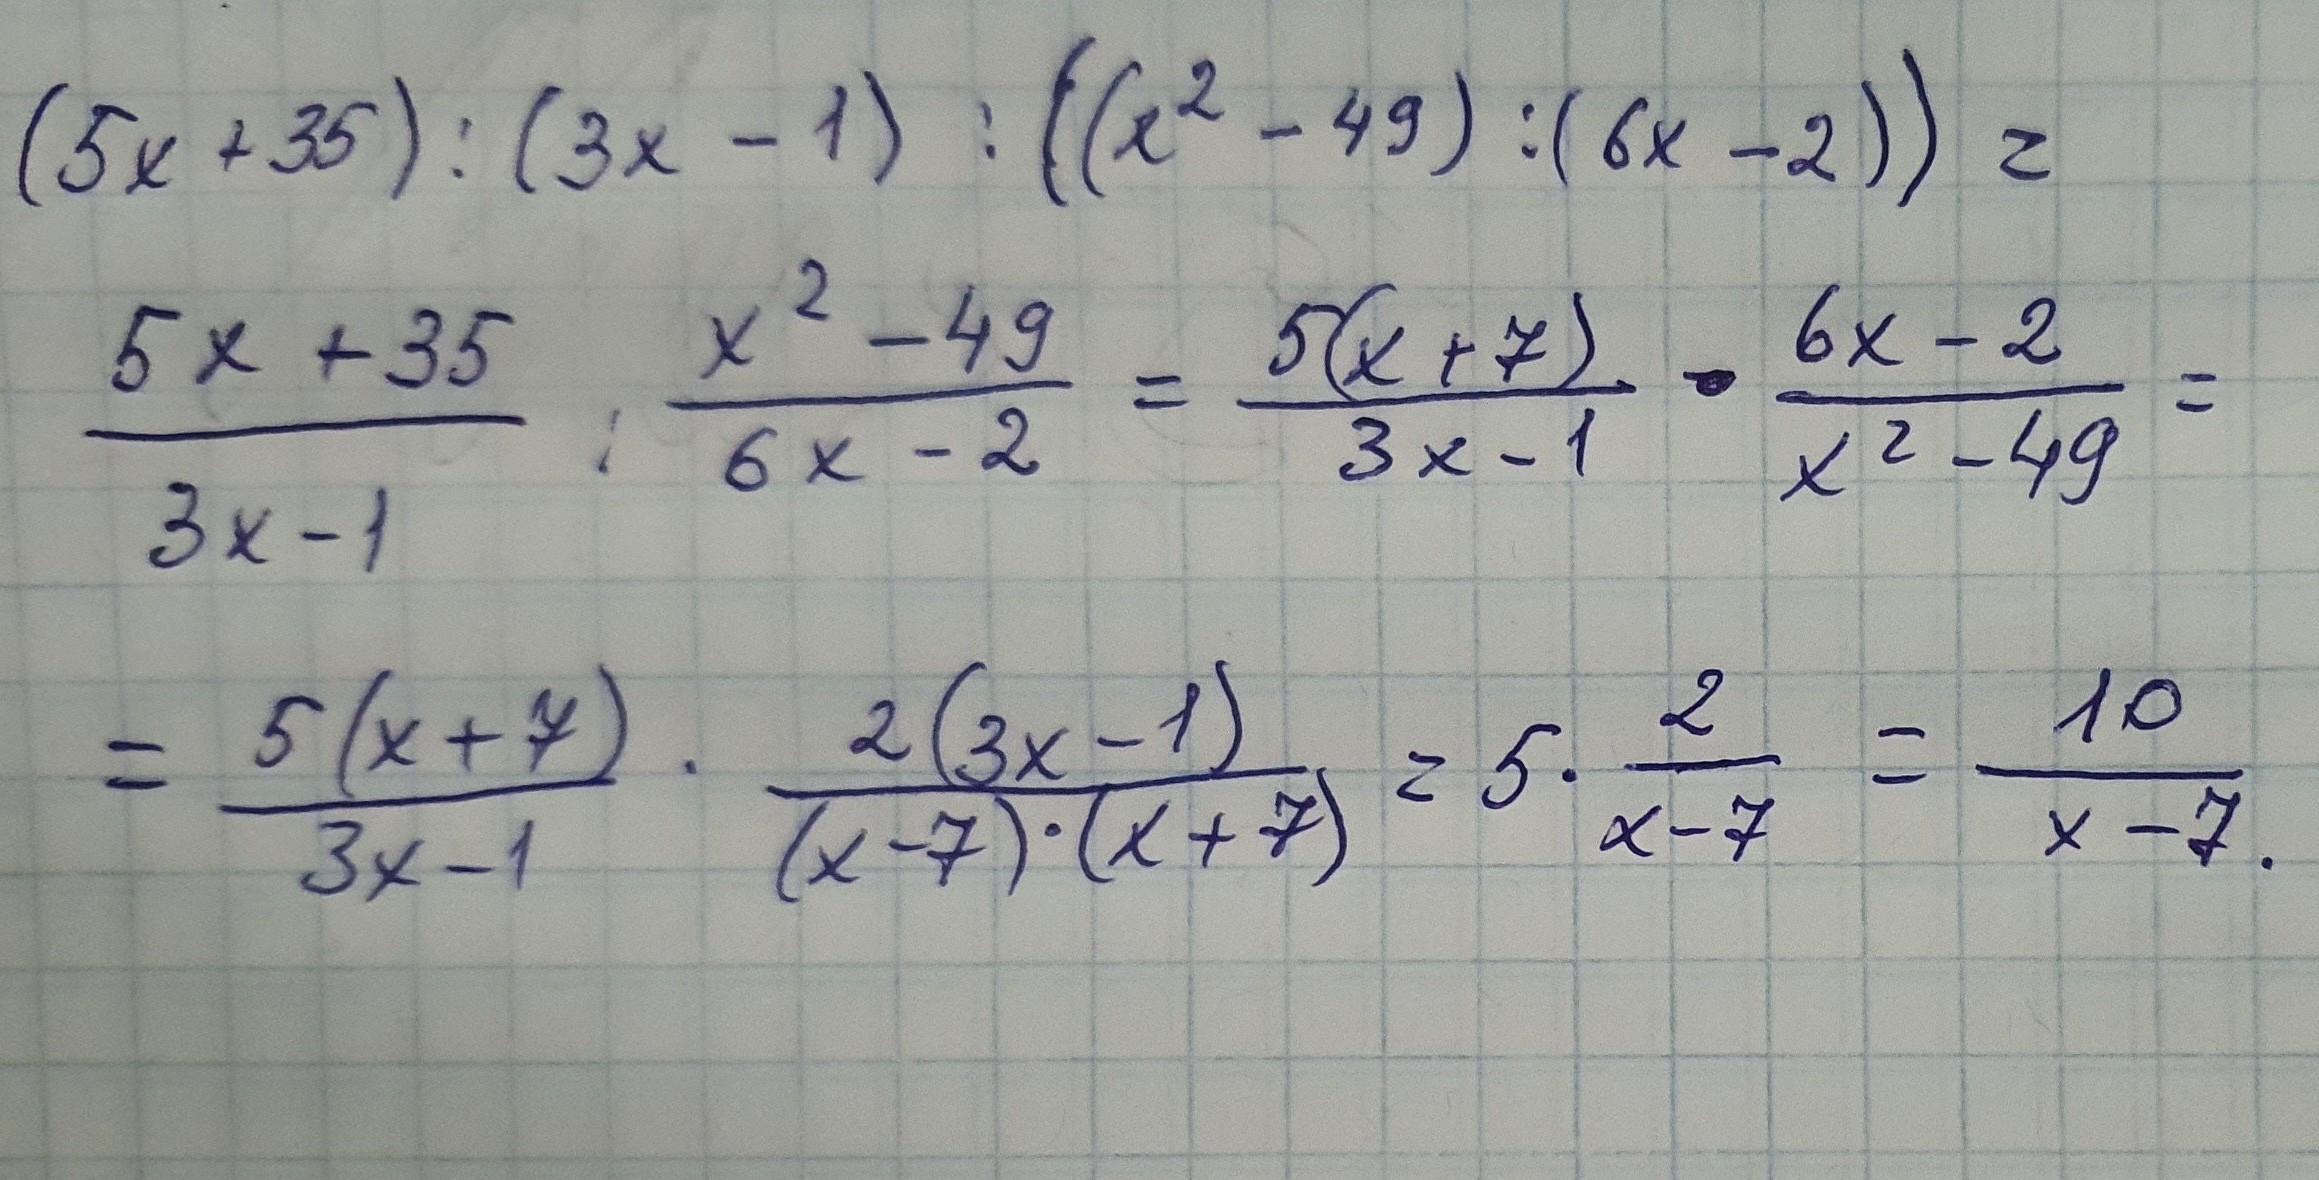 (5x+35):(3x-1):((x²-49):(6x-2))=
(5x+35)/(3x-1) : (x²-49)/(6x-2) = 5(x+7)/(3x-1) · (6x-2)/(x²-49) =
= 5(x+7)/(3x-1) · 2(3x-1)/((x-7)·(x+7)) = 5·2/(x-7) = 10/(x-7).